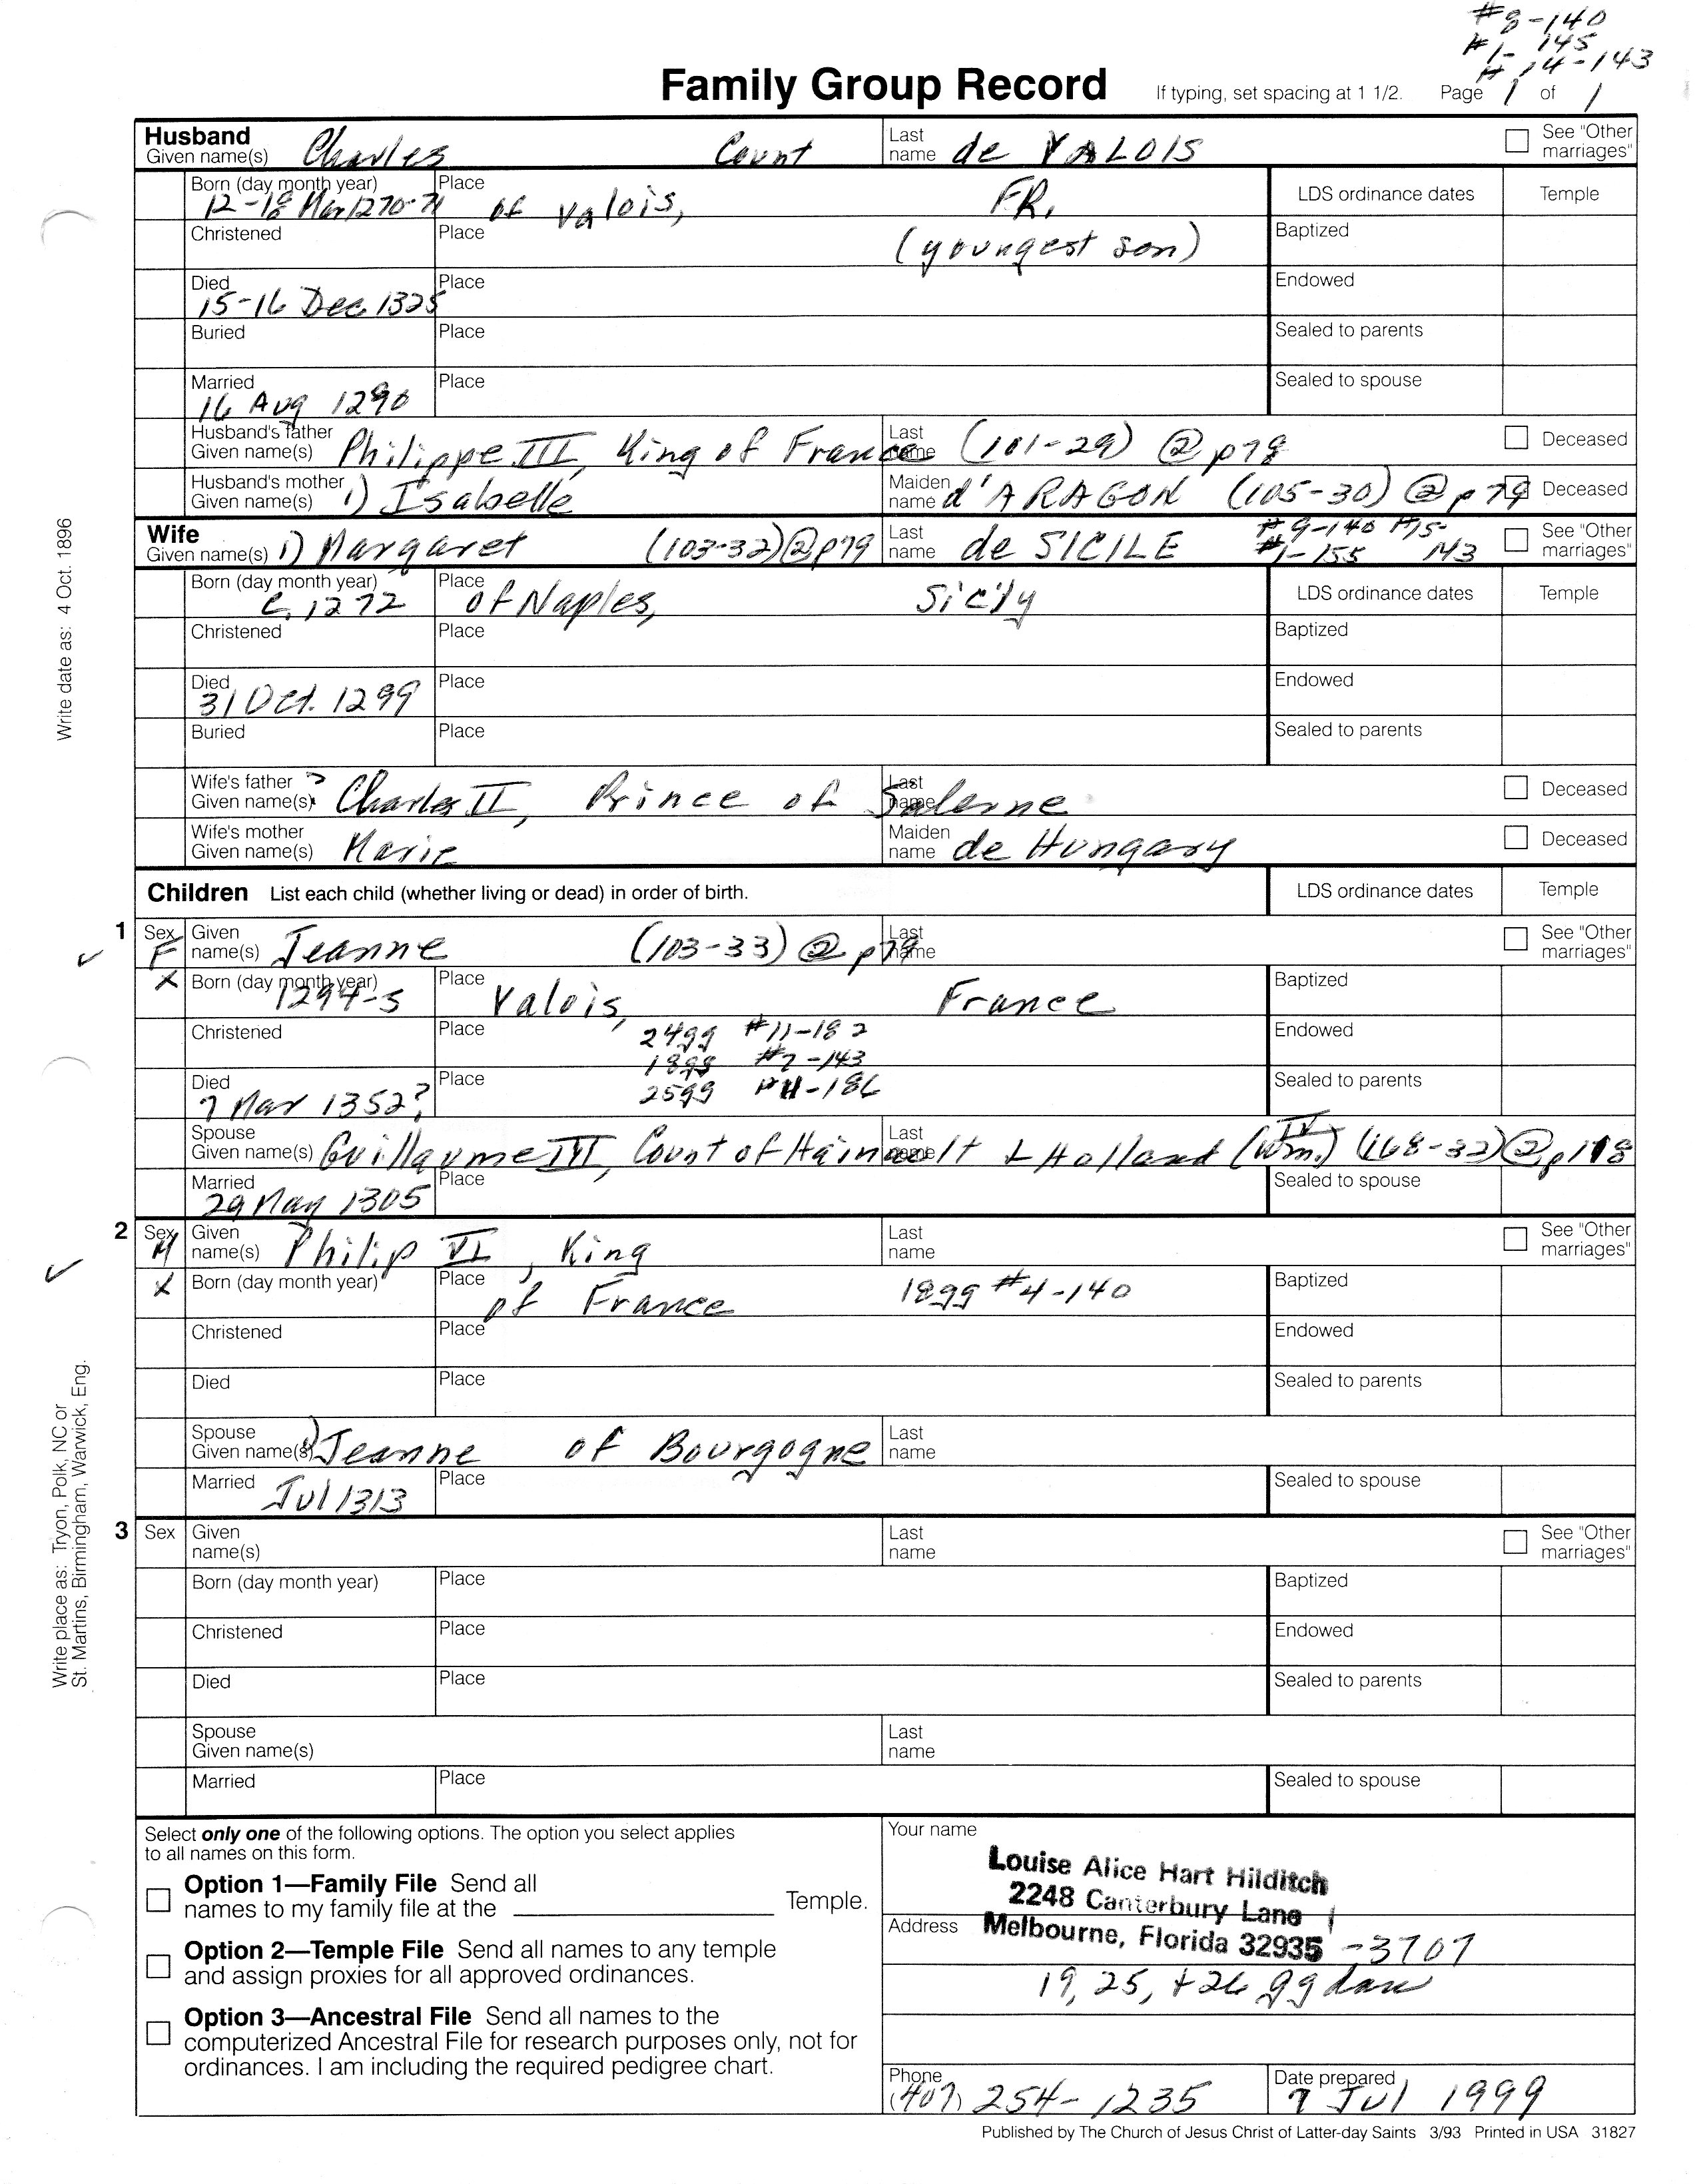 #8-140
#1-145
#14-143
Family Group Record If typing, set spacing at 1 1/2. Page 1 of 1
Husband Given name(s) Charles Count Last name de VALOIS See "Other marriages"
Born (day month year) 12-18 Mar 1270-71 Place of Valois, FR, LDS ordinance dates Temple
Christened Place (youngest son) Baptized
Died 15-16 Dec 1325 Place Endowed
Buried Place Sealed to parents
Married 16 Aug 1290 Place Sealed to spouse
Husband's father Given name(s) Philippe III, King of France Last name (101-29) @ p78 Deceased
Husband's mother Given name(s) 1) Isabelle Maiden name d'ARAGON (105-30) @ p79 Deceased
Wife Given name(s) 1) Margaret (103-32) @ p79 Last name de SICILE #9-140 #15-143 #1-155 See "Other marriages"
Born (day month year) C. 1272 Place of Naples, Sicily LDS ordinance dates Temple
Christened Place Baptized
Died 31 Oct. 1299 Place Endowed
Buried Place Sealed to parents
Wife's father Given name(s) Charles II, Prince of Salerne Last name Deceased
Wife's mother Given name(s) Marie Maiden name de Hungary Deceased
Children List each child (whether living or dead) in order of birth. LDS ordinance dates Temple
1 Sex F Given name(s) Jeanne (103-33) @ p79 Last name See "Other marriages"
X Born (day month year) 1294-5 Place Valois, France Baptized
Christened Place 24gg #11-182 Endowed
18gg #7-143
Died 7 Mar 1352? Place 25gg #11-186 Sealed to parents
Spouse Given name(s) Guillaume III, Count of Hainault & Holland Last name (Wm. IV) (168-32) @ p118
Married 29 May 1305 Place Sealed to spouse
2 Sex M Given name(s) Philip VI, King Last name See "Other marriages"
X Born (day month year) Place of France 18gg #4-140 Baptized
Christened Place Endowed
Died Place Sealed to parents
Spouse Given name(s) 1) Jeanne of Bourgogne Last name
Married Jul 1313 Place Sealed to spouse
3 Sex Given name(s) Last name See "Other marriages"
Born (day month year) Place Baptized
Christened Place Endowed
Died Place Sealed to parents
Spouse Given name(s) Last name
Married Place Sealed to spouse
Select only one of the following options. The option you select applies
to all names on this form.
Option 1—Family File Send all
names to my family file at the Temple.
Option 2—Temple File Send all names to any temple
and assign proxies for all approved ordinances.
Option 3—Ancestral File Send all names to the
computerized Ancestral File for research purposes only, not for
ordinances. I am including the required pedigree chart.
Your name
Louise Alice Hart Hilditch
2248 Canterbury Lane
Address Melbourne, Florida 32935 -3707
19, 25, + 26 gg dau
Phone (407) 254-1235 Date prepared 7 Jul 1999
Published by The Church of Jesus Christ of Latter-day Saints 3/93 Printed in USA 31827
Write date as: 4 Oct. 1896
Write place as: Tryon, Polk, NC or
St. Martins, Birmingham, Warwick, Eng.